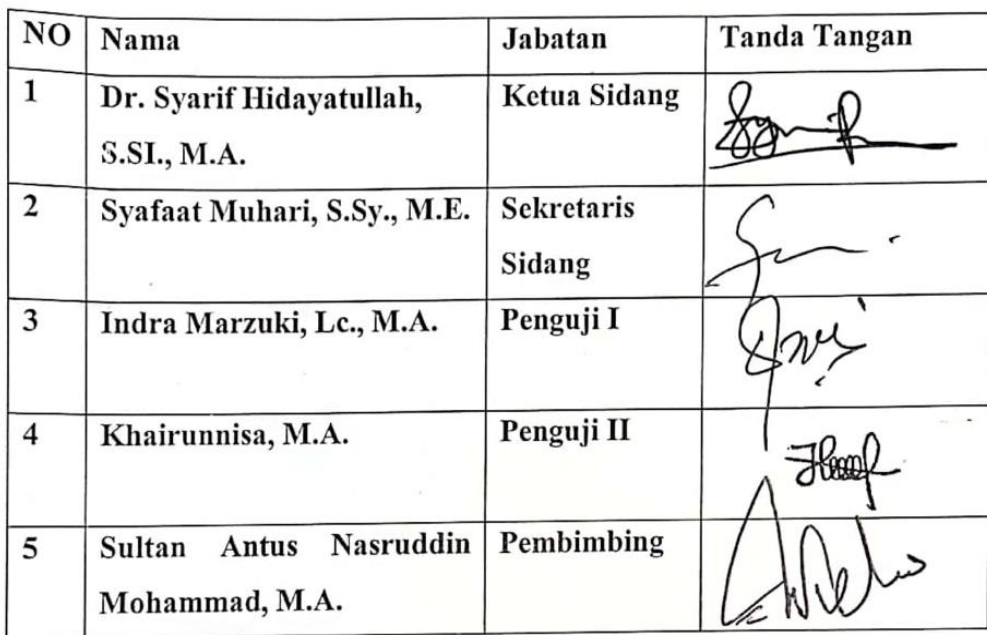 NO Nama Jabatan Tanda Tangan
1 Dr. Syarif Hidayatullah, Ketua Sidang
S.SI., M.A.
2 Syafaat Muhari, S.Sy., M.E. Sekretaris
Sidang
3 Indra Marzuki, Lc., M.A. Penguji I
4 Khairunnisa, M.A. Penguji II
5 Sultan Antus Nasruddin Pembimbing
Mohammad, M.A.